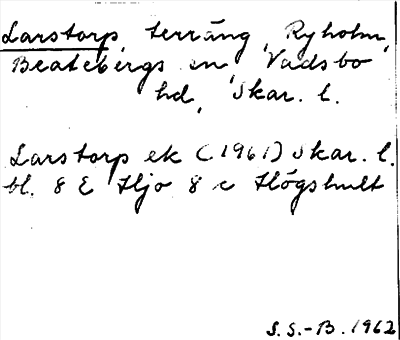 Larstorp, terräng, Ryholm,
Beatebergs sn, Vadsbo
hd, Skar. l.
Larstorp ek (1961) Skar. l.
bl. 8 E Hjo 8 c Högshult
S.S.-B. 1962